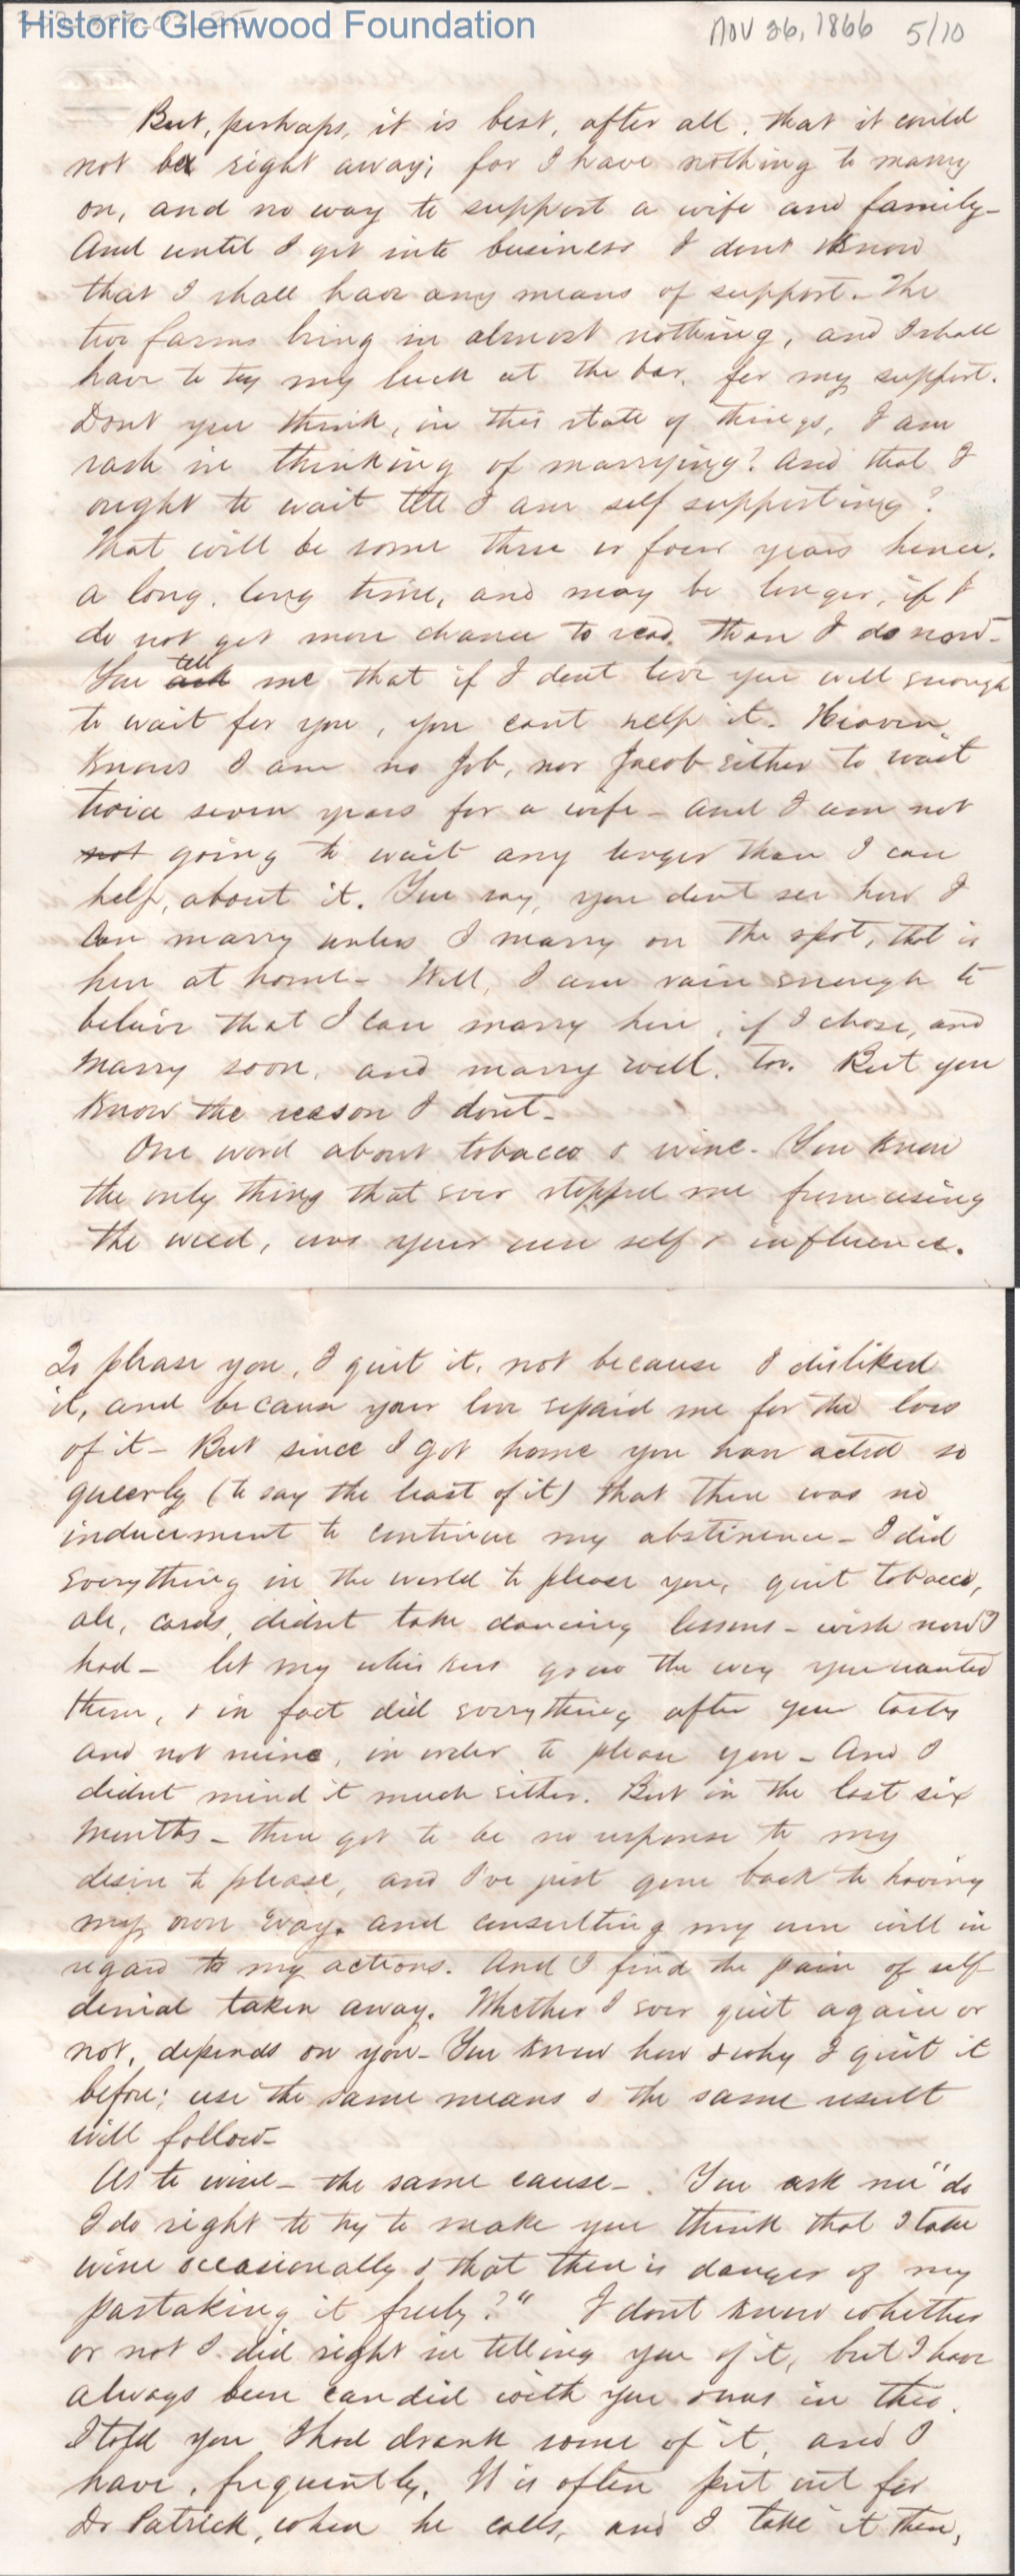 Historic Glenwood Foundation
Nov 26, 1866 5/10
But, perhaps, it is best, after all, that it could
not be right away; for I have nothing to marry
on, and no way to support a wife and family-
And until I get into business I dont know
that I shall have any means of support. The
two farms bring in almost nothing, and I shall
have to try my luck at the bar, for my support.
Dont you think, in this state of things, I am
rash in thinking of marrying? And that I
ought to wait till I am self supporting?
That will be some three or four years hence,
a long, long time, and may be longer, if I
do not get more chance to read, than I do now-
You ask tell me that if I dont love you well enough
to wait for you, you cant help it. Heaven
knows I am no Job, nor Jacob either to wait
twice seven years for a wife - and I am not
not going to wait any longer than I can
help, about it. You say, you dont see how I
can marry unless I marry on the spot, that is
here at home- Well, I am vain enough to
believe that I can marry here, if I chose, and
marry soon, and marry well, too. But you
know the reason I dont-
One word about tobacco & wine. You know
the only thing that ever stopped me from using
the weed, was your own self & influence.
To please you, I quit it, not because I disliked
it, and because your love repaid me for the loss
of it - But since I got home you have acted so
queerly (to say the least of it) that there was no
inducement to continue my abstinence - I did
everything in the world to please you, quit tobacco,
ale, cards, didnt take dancing lessons - wish now I
had - let my whiskers grow the way you wanted
them, & in fact did everything after your tastes
and not mine, in order to please you - And I
didnt mind it much either. But in the last six
months - there got to be no response to my
desire to please, and I've just gone back to having
my own way, and consulting my own will in
regard to my actions. And I find the pain of self
denial taken away. Whether I ever quit again or
not, depends on you - You know how & why I quit it
before; use the same means & the same result
will follow-
As to wine - the same cause - . You ask me "do
I do right to try to make you think that I take
wine occasionally & that there is danger of my
partaking it freely?" I dont know whether
or not I did right in telling you of it, but I have
always been candid with you & was in this.
I told you I had drank some of it, and I
have, frequently. It is often put out for
Dr Patrick, when he calls, and I take it then,